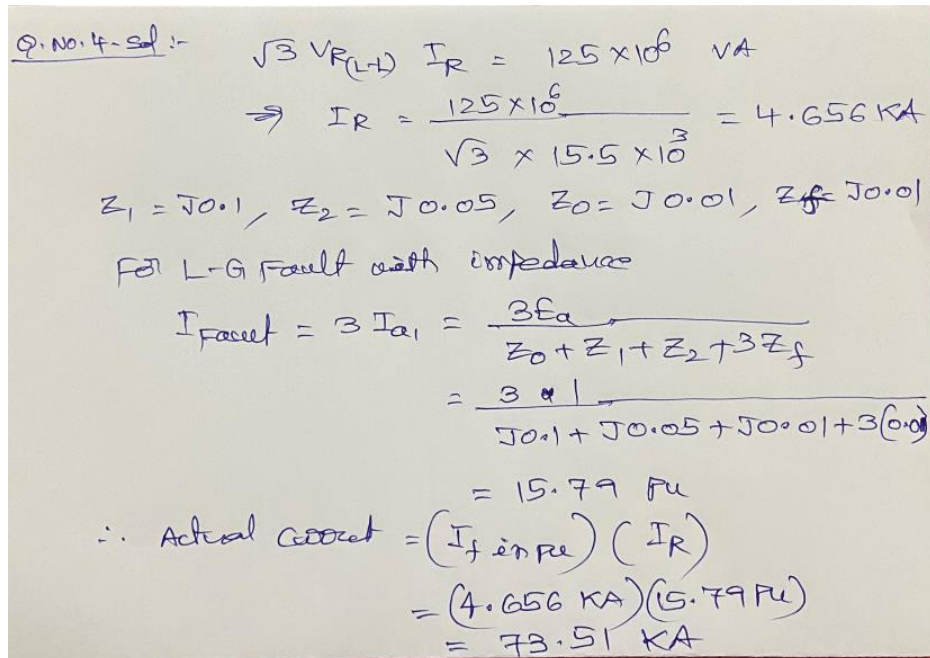 Q.No.4-Sol :-
√3 VR(L-L) IR = 125 ×10⁶ VA
⇒ IR = 125×10⁶ / √3 × 15.5 ×10³ = 4.656 KA
Z₁ = J0.1, Z₂ = J0.05, Z₀ = J0.01, Zf = J0.01
For L-G Fault with impedance
I = 3 Ia₁ = 3Ea / Z₀ + Z₁ + Z₂ + 3Zf
= 3 × 1 / J0.1 + J0.05 + J0.01 + 3(0.0
= 15.79 PU
∴ Actual = (If in pu) (IR)
= (4.656 KA)(15.79 PU)
= 73.51 KA